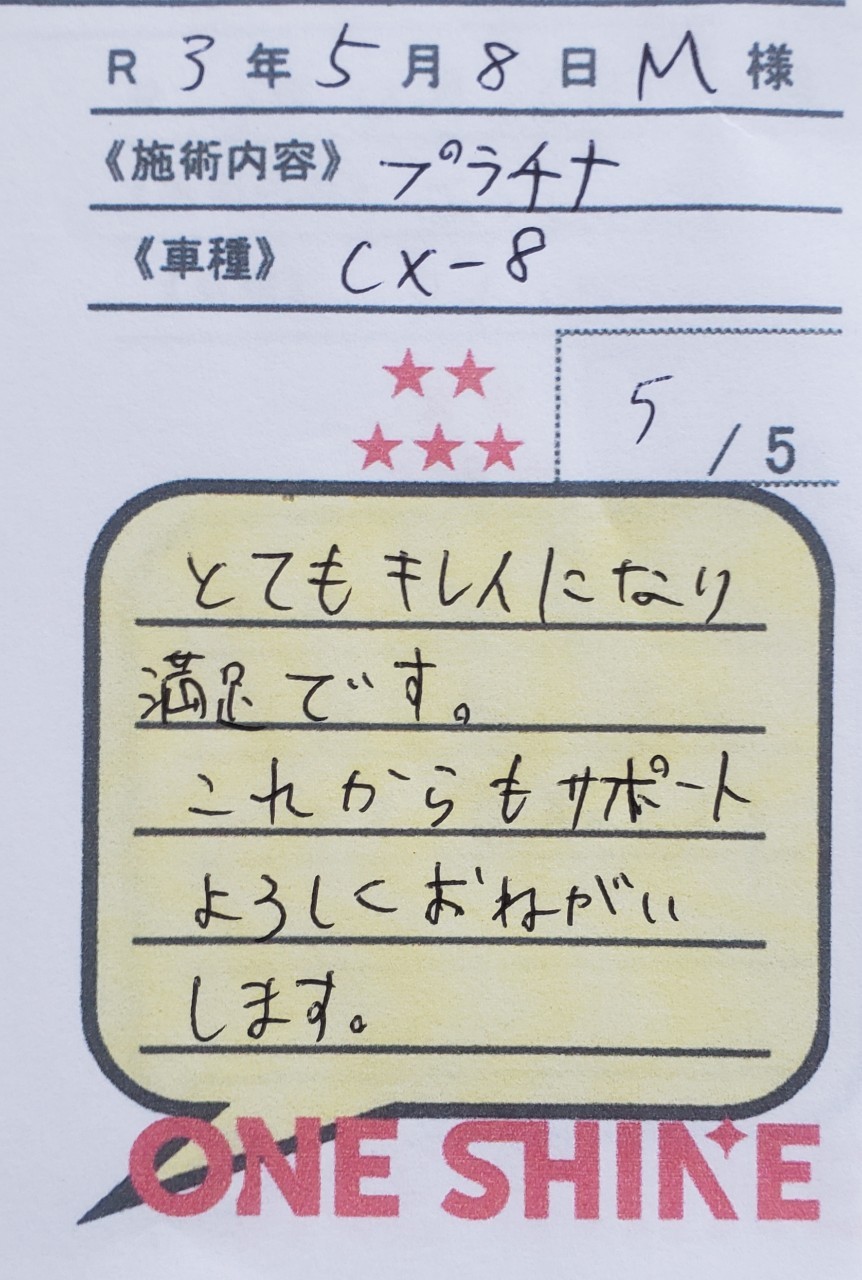 R 3年5月8日 M様
《施術内容》 プラチナ
《車種》 CX-8
★★
★★★
5/5
とてもキレイになり
満足です。
これからもサポート
よろしくおねがい
します。
ONE SHINE